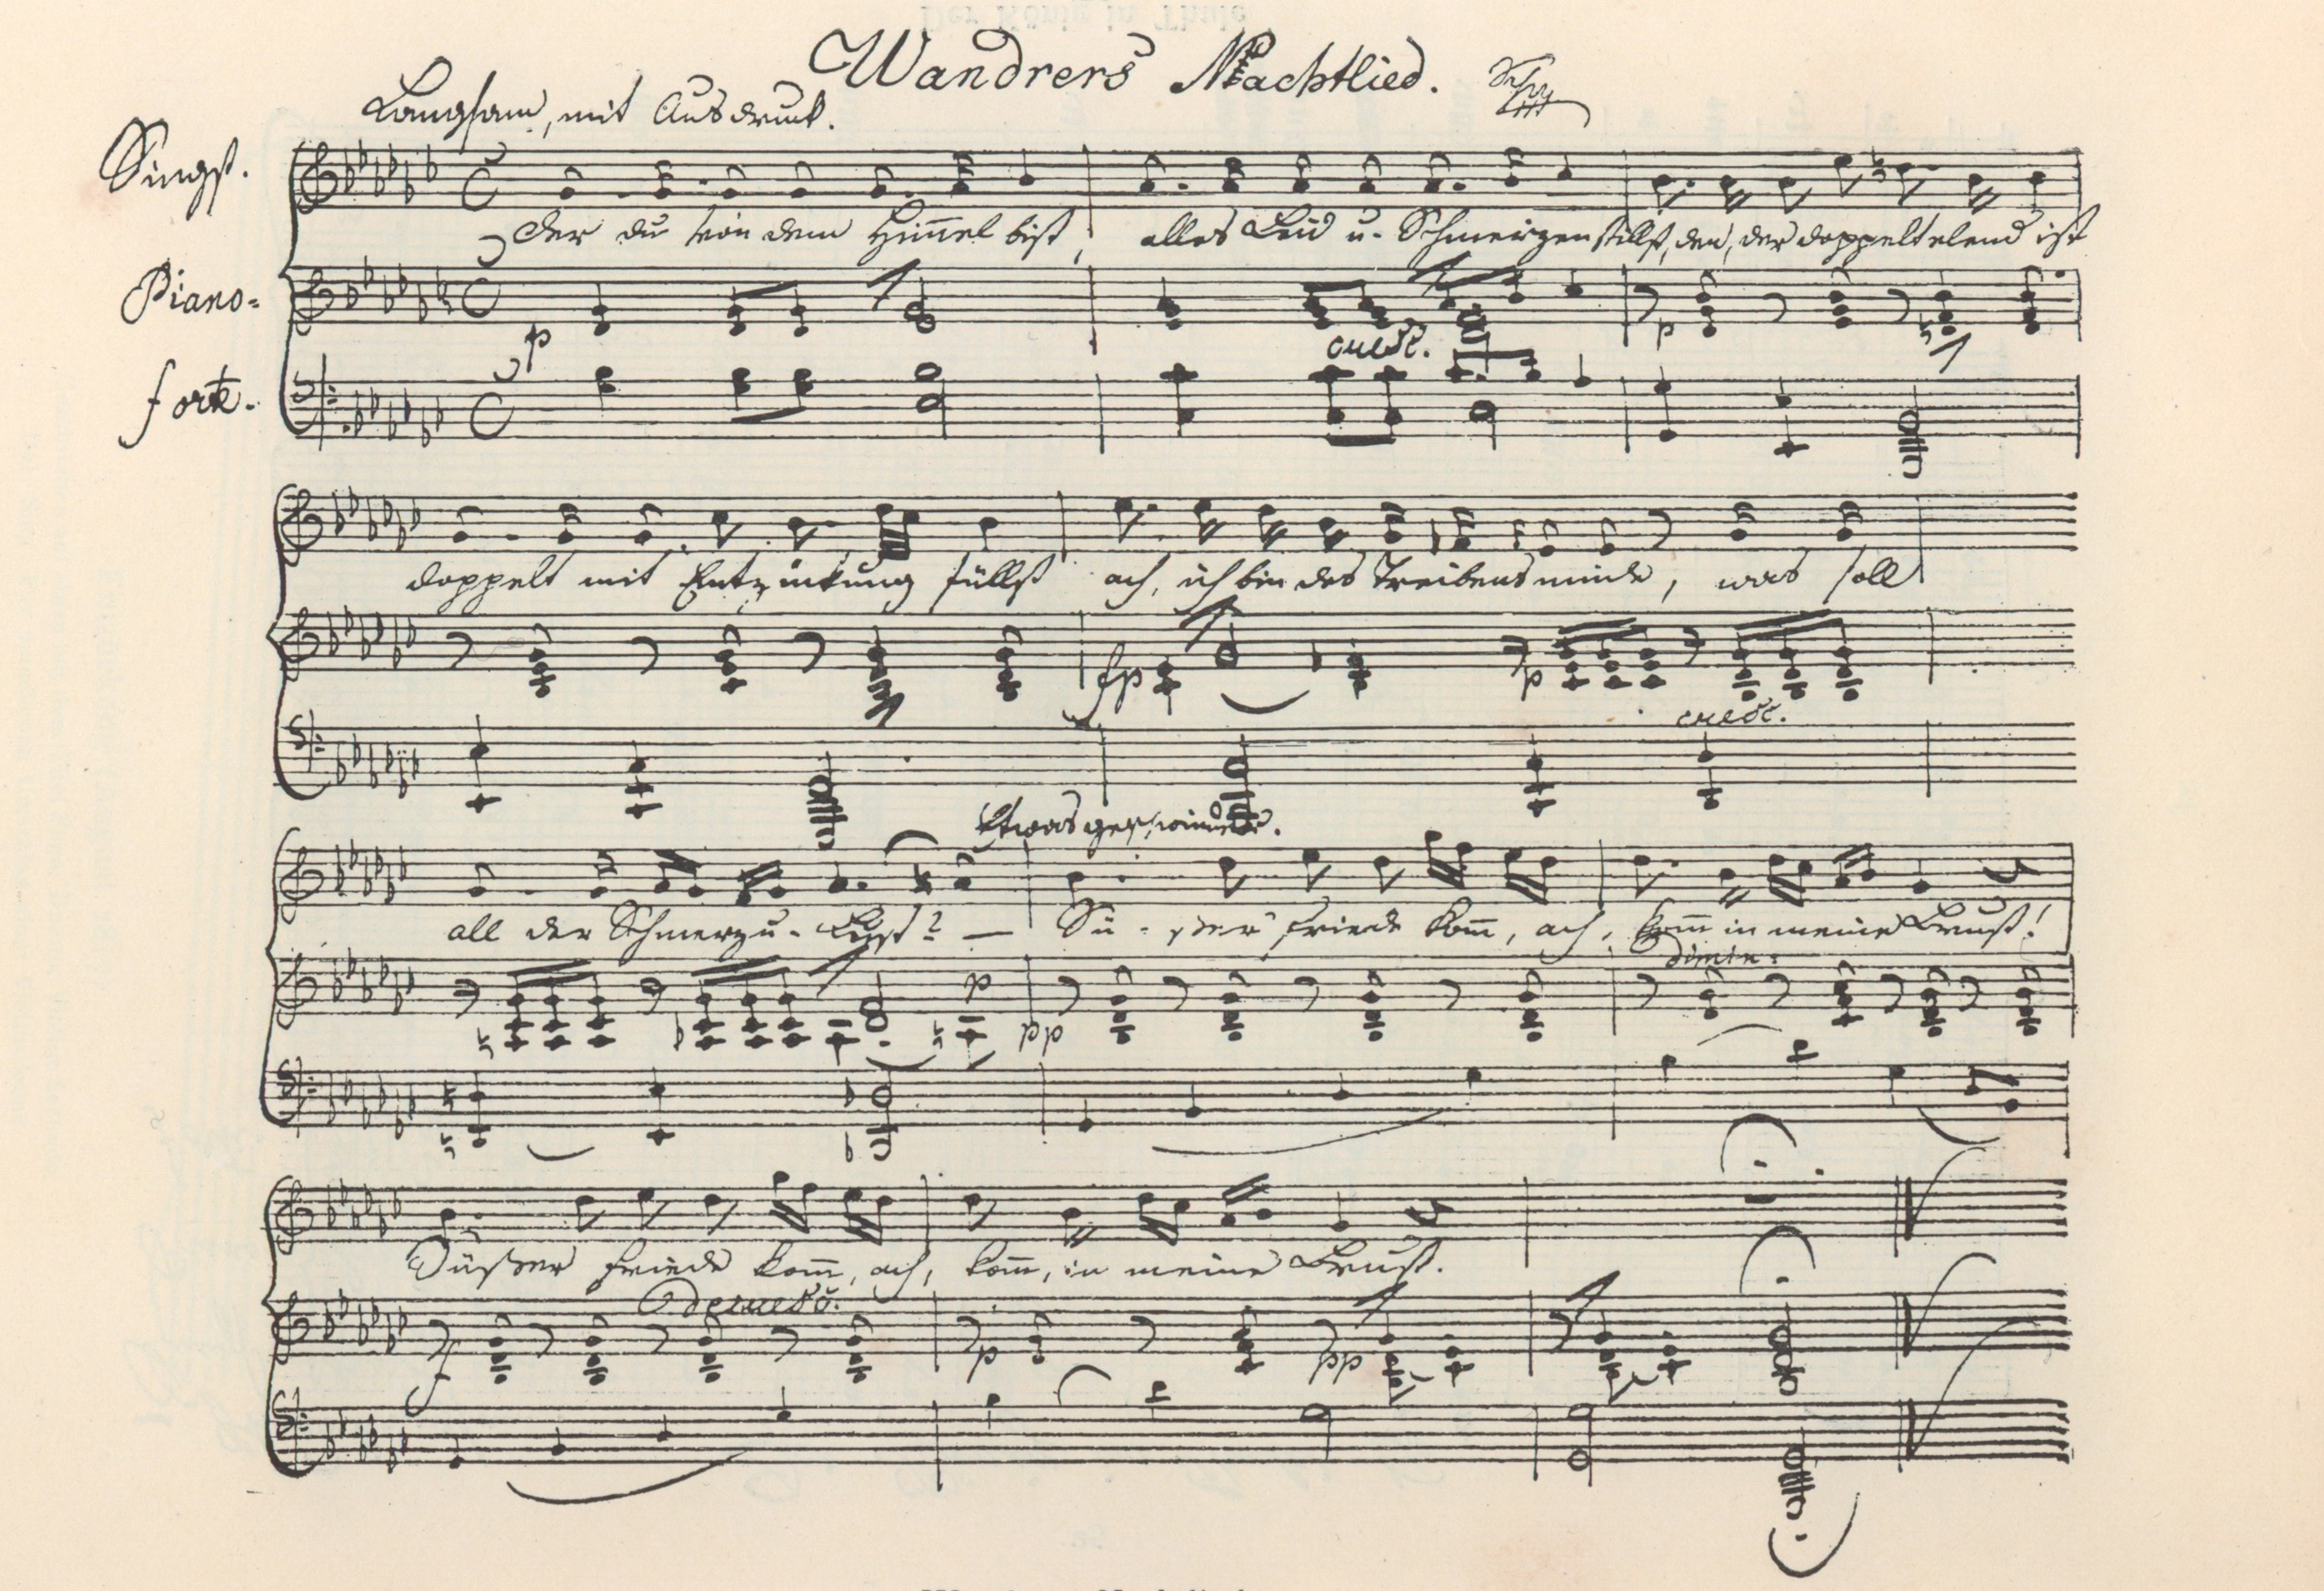 Wandrers Nachtlied.
Langsam, mit Ausdruck.
Singst.
Der du von dem Him̅el bist, alles Leid u. Schmerzen stillst, den, der doppelt elend ist
Piano-
p cresc. p
forte.
doppelt mit Entzückung füllst ach, ich bin des Treibens müde, was soll
fp p
cresc.
Etwas geschwinder.
all der Schmerz u. Lust? — Sü-ßer Friede kom̅, ach, kom̅ in meine Brust!
dimin:
p
pp
Süßer Friede kom̅, ach, kom̅, in meine Brust.
decresc.
f p pp